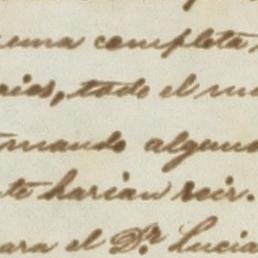 una completa
rios, todo el mu
mando alguna
te harian reir.
para el Dr. Lucia